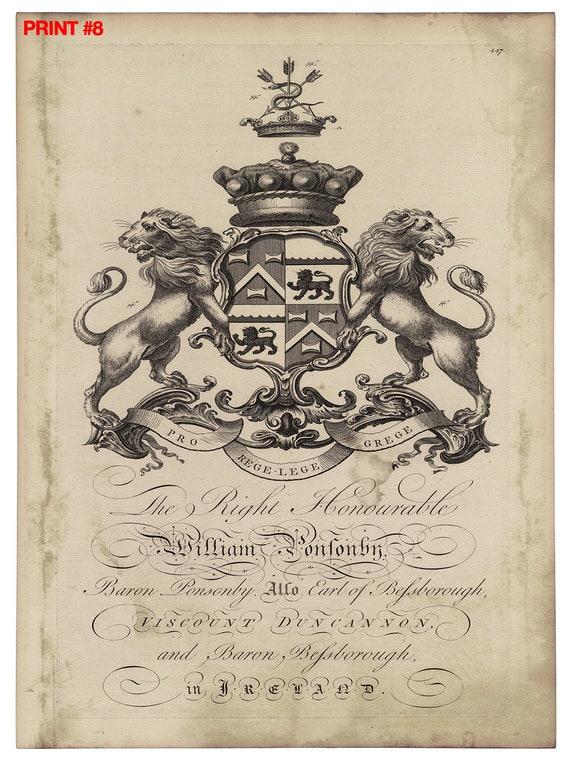 PRINT #8
447
PRO REGE·LEGE GREGE
The Right Honourable
William Ponſonby,
Baron Ponsonby, Alſo Earl of Beſsborough,
VISCOUNT DUNCANNON,
and Baron Beſsborough,
in IRELAND.